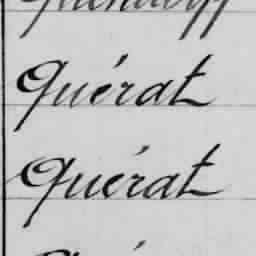 Quérat
Quérat